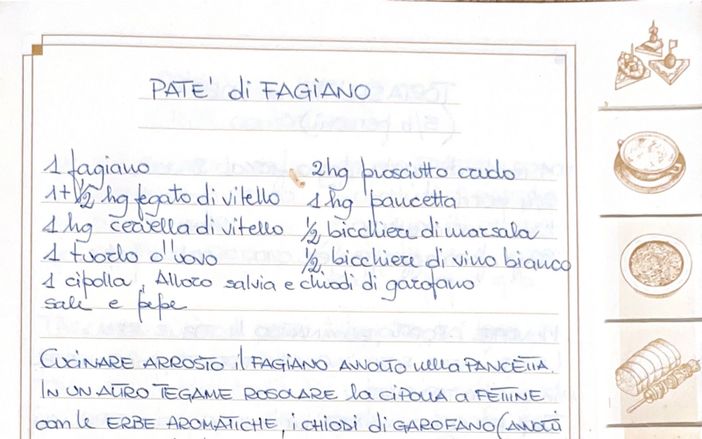 PATE' di FAGIANO
1 fagiano 2hg prosciutto crudo
1+1/2 hg fegato di vitello 1 hg pancetta
1 hg cervella di vitello 1/2 bicchiere di marsala
1 tuorlo d'uovo 1/2 bicchiere di vino bianco
1 cipolla, Alloro salvia e chiodi di garofano
sale e pepe
CUCINARE ARROSTO il FAGIANO AVVOLTO nella PANCETTA.
IN UN ALTRO TEGAME ROSOLARE la CIPOLLA A FETTINE
con le ERBE AROMATICHE, i CHIODI di GAROFANO (AVVOLTI